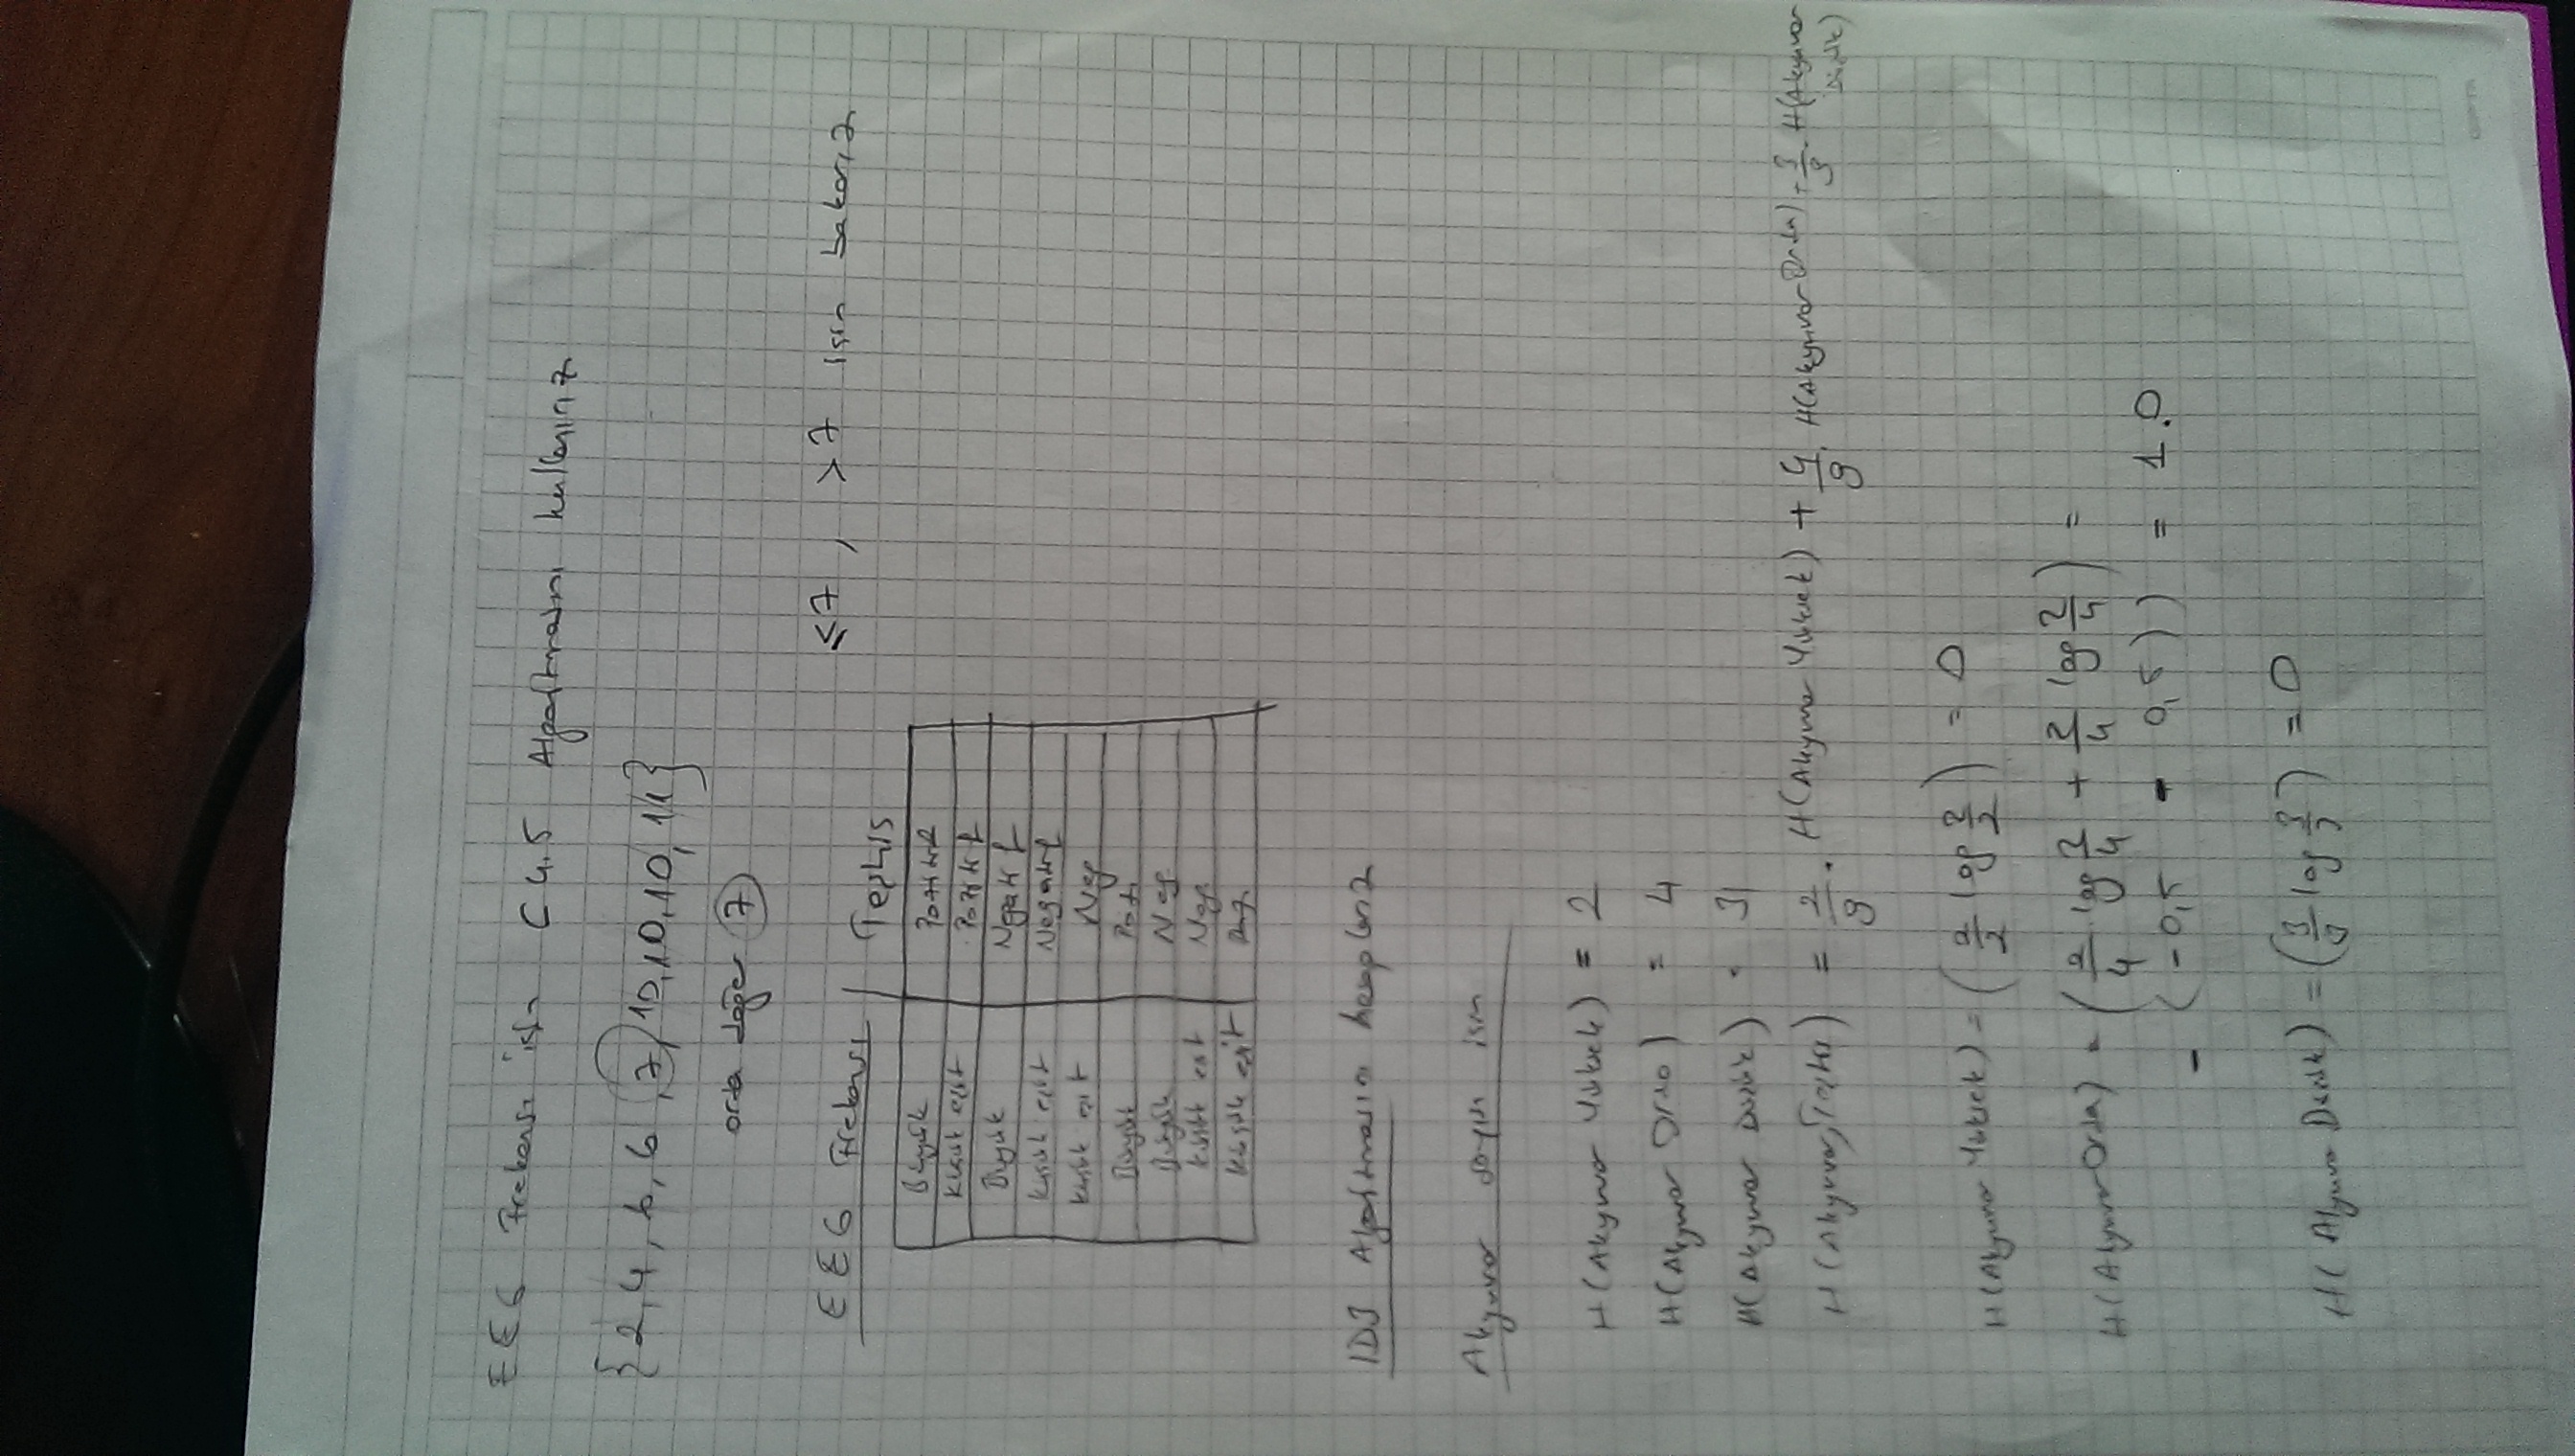 EEG Frekansı için C4.5 Algoritmasını kullanırız
{2,4,6,6,7,10,10,10,10,11}
orta değer 7
≤7, >7 için bakarız
EEG Frekansı Teşhis
Büyük Pozitif
Küçük eşit Pozitif
Büyük Negatif
Küçük eşit Negatif
Küçük eşit Neg
Büyük Poz
Büyük Neg
Küçük eşit Neg
Küçük eşit
ID3 Algoritmasını hesaplarız
Akyuvar sayısı için
H(Akyuvar Yüksek) = 2
H(Akyuvar Orta) = 4
H(Akyuvar Düşük) = 3
H(Akyuvar, Teşhis) = 2/9 . H(Akyuvar Yüksek) + 4/9 H(Akyuvar Orta) + 3/9 H(Akyuvar
Düşük)
H(Akyuvar Yüksek) = (2/2 log 2/2) = 0
H(Akyuvar Orta) = (2/4 log 2/4 + 2/4 log 2/4) =
- (-0,5 - 0,5)) = 1.0
H(Akyuvar Düşük) = (3/3 log 3/3) = 0